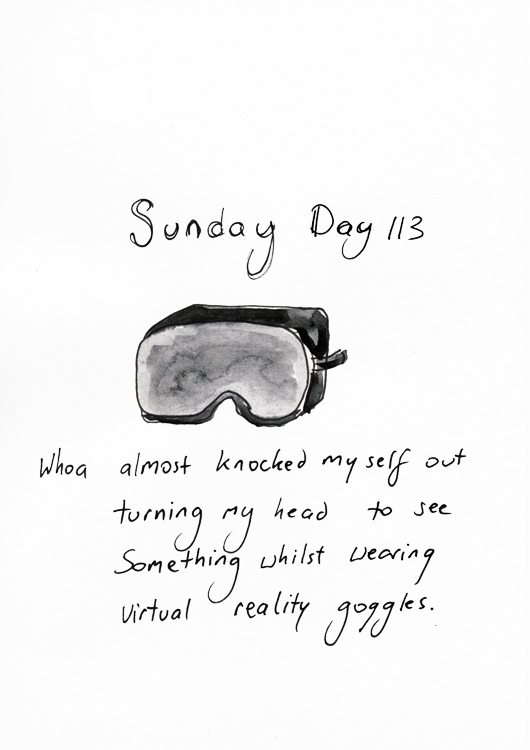 Sunday Day 113
Whoa almost knocked my self out
turning my head to see
Something whilst wearing
virtual reality goggles.